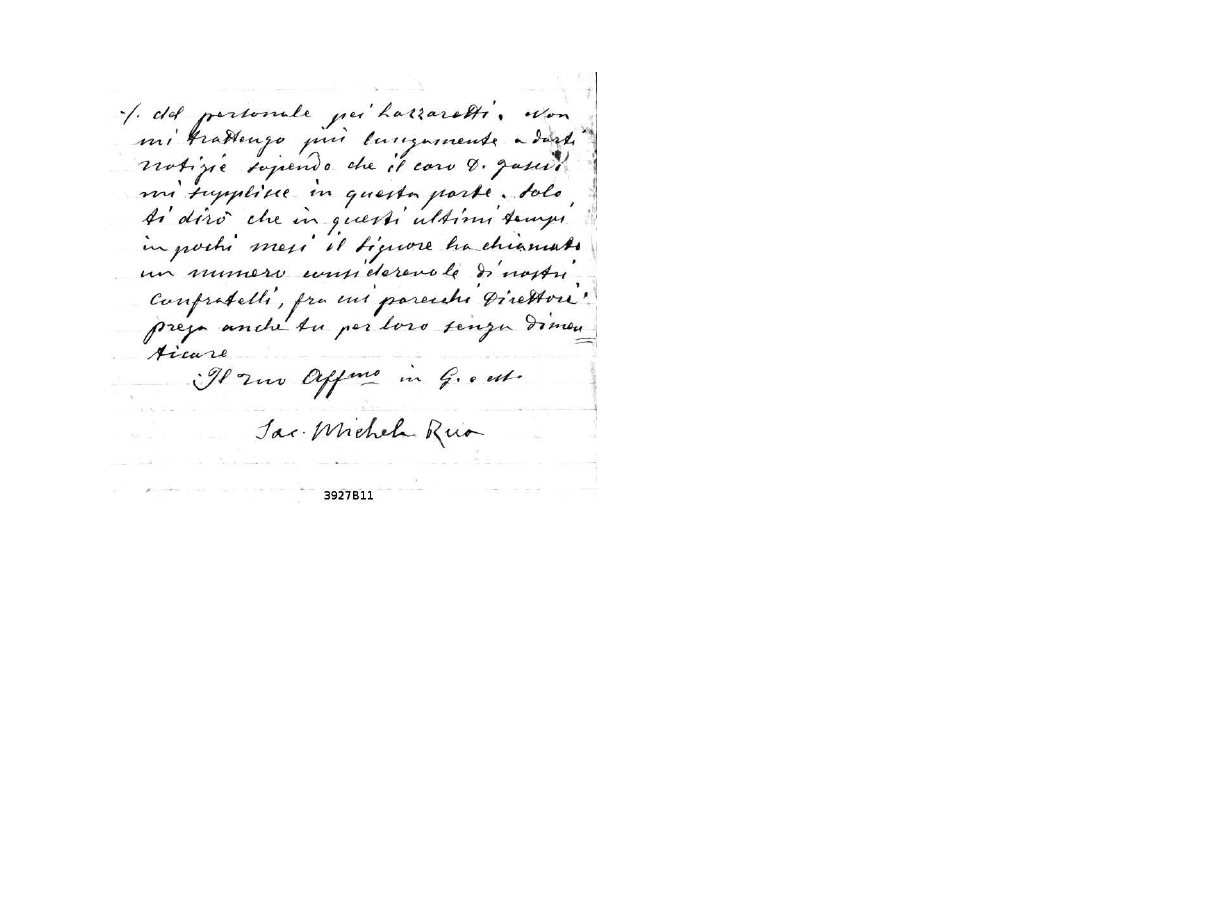 ·/. del personale pei Lazzaretti. Non
mi trattengo più lungamente a darti
notizie sapendo che il caro D.
mi supplisce in questa parte. Solo
ti dirò che in questi ultimi tempi
in pochi mesi il Signore ha chiamato
un numero considerevole di nostri
Confratelli, fra cui parecchi Direttori
prega anche tu per loro senza dimen
ticare
Il tuo Affmo in G. e M.
Sac. Michele Rua
3927B11